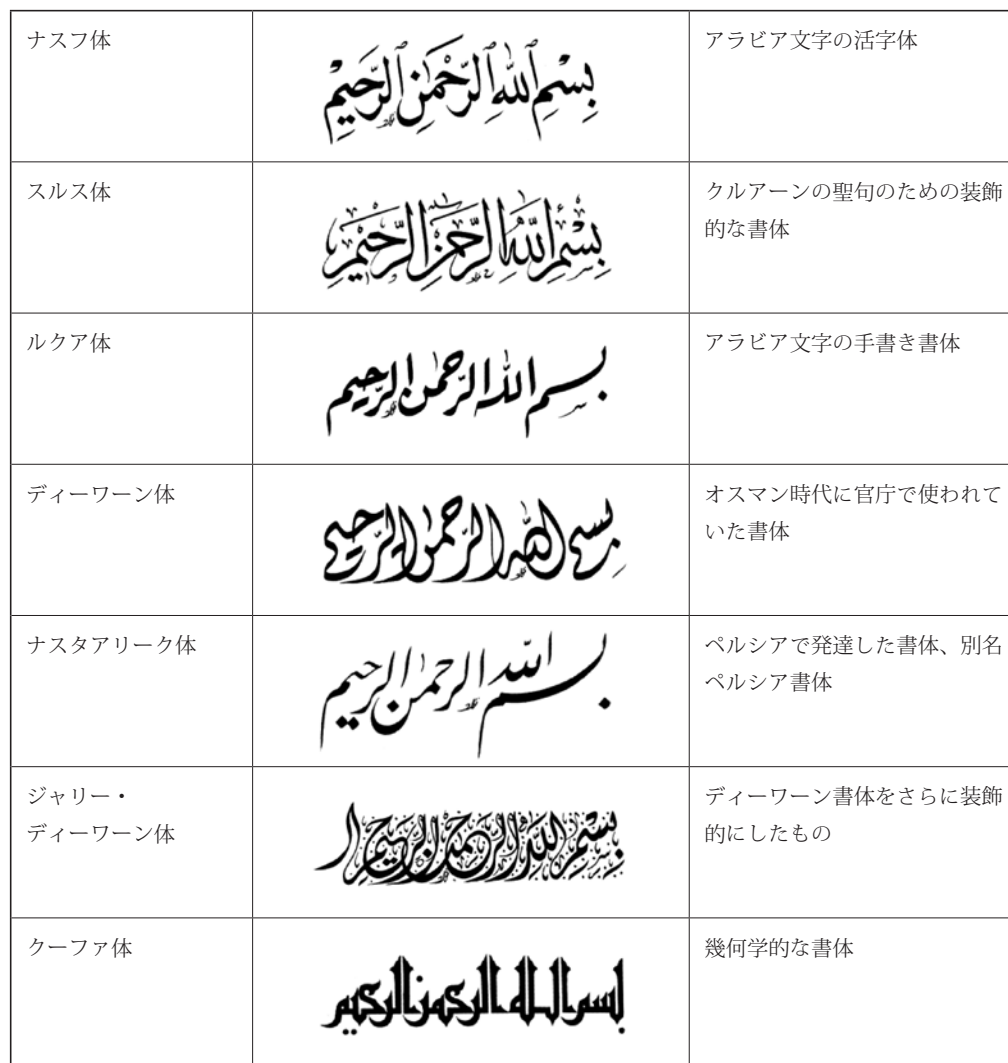 ナスフ体
بِسْمِ ٱللَّهِ ٱلرَّحْمَٰنِ ٱلرَّحِيمِ
アラビア文字の活字体
スルス体
بِسْمِ اللَّهِ الرَّحْمَنِ الرَّحِيمِ
クルアーンの聖句のための装飾
的な書体
ルクア体
بسم الله الرّحمن الرّحيم
アラビア文字の手書き書体
ディーワーン体
بسم الله الرحمن الرّحيم
オスマン時代に官庁で使われて
いた書体
ナスタアリーク体
بسم الله الرحمن الرحيم
ペルシアで発達した書体、別名
ペルシア書体
ジャリー・
ディーワーン体
بسم الله الرحمن الرحيم
ディーワーン書体をさらに装飾
的にしたもの
クーファ体
بسم الله الرحمن الرحيم
幾何学的な書体